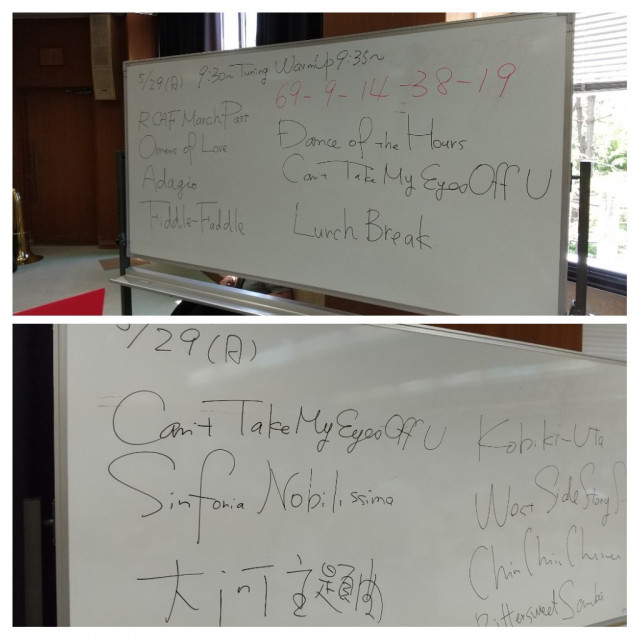 5/29(日) 9:30~ Tuning WarmUp 9:35~
69-9-14-38-19
RCAF March Past
Omens of Love
Adagio
Fiddle-Faddle
Dance of the Hours
Can't Take My Eyes Off U
Lunch Break
5/29(日)
Can't Take My Eyes Off U
Sinfonia Nobilissima
大河主題曲
Kobiki-Uta
West Side Story
Chim Chim
Bittersweet Samba